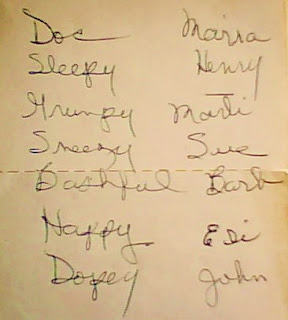 Doc Maria
Sleepy Henry
Grumpy Marti
Sneezy Sue
Bashful Barb
Happy Edi
Dopey John